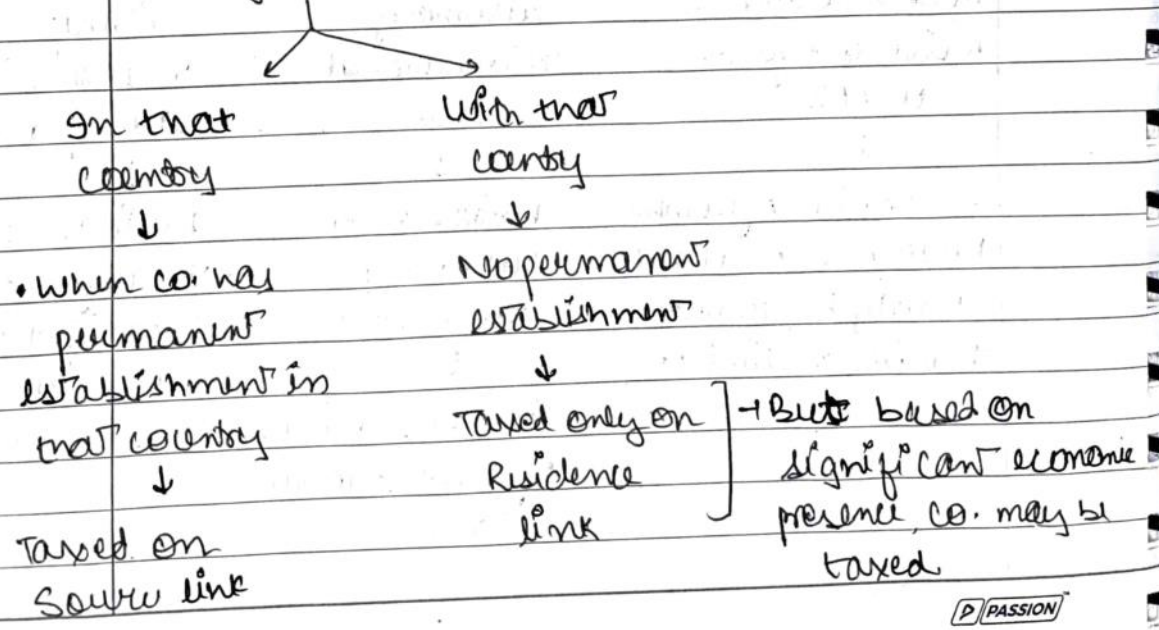 In that
country
↓
• When co. has
permanent
establishment in
that country
↓
Taxed on
Source link
With that
country
↓
No permanent
establishment
↓
Taxed only on
Residence
link
→ But based on
significant economic
presence, co. may be
taxed
P PASSION